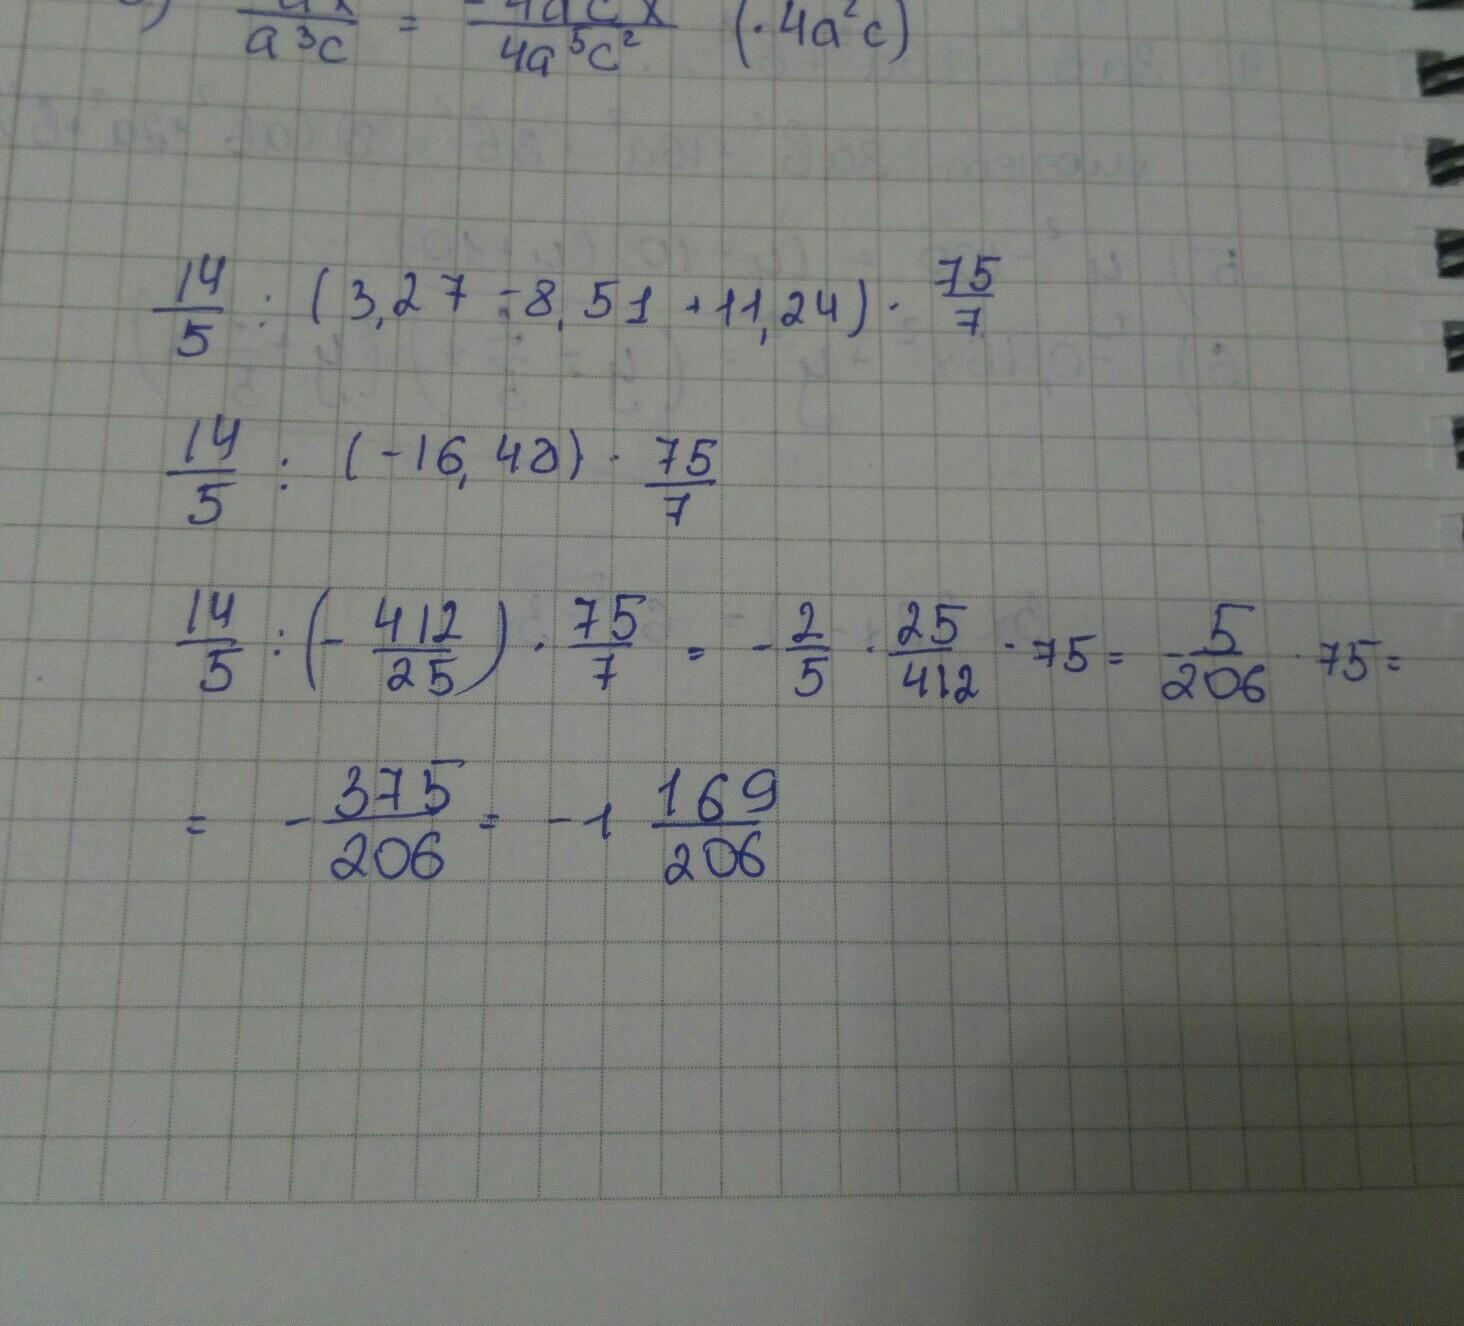 a³c = 4a⁵c² (·4a²c)
14/5 : (3,27 - 8,51 + 11,24) · 75/7
14/5 : (-16,48) · 75/7
14/5 : (- 412/25) · 75/7 = - 2/5 · 25/412 · 75 = - 5/206 · 75 =
= - 375/206 = -1 169/206